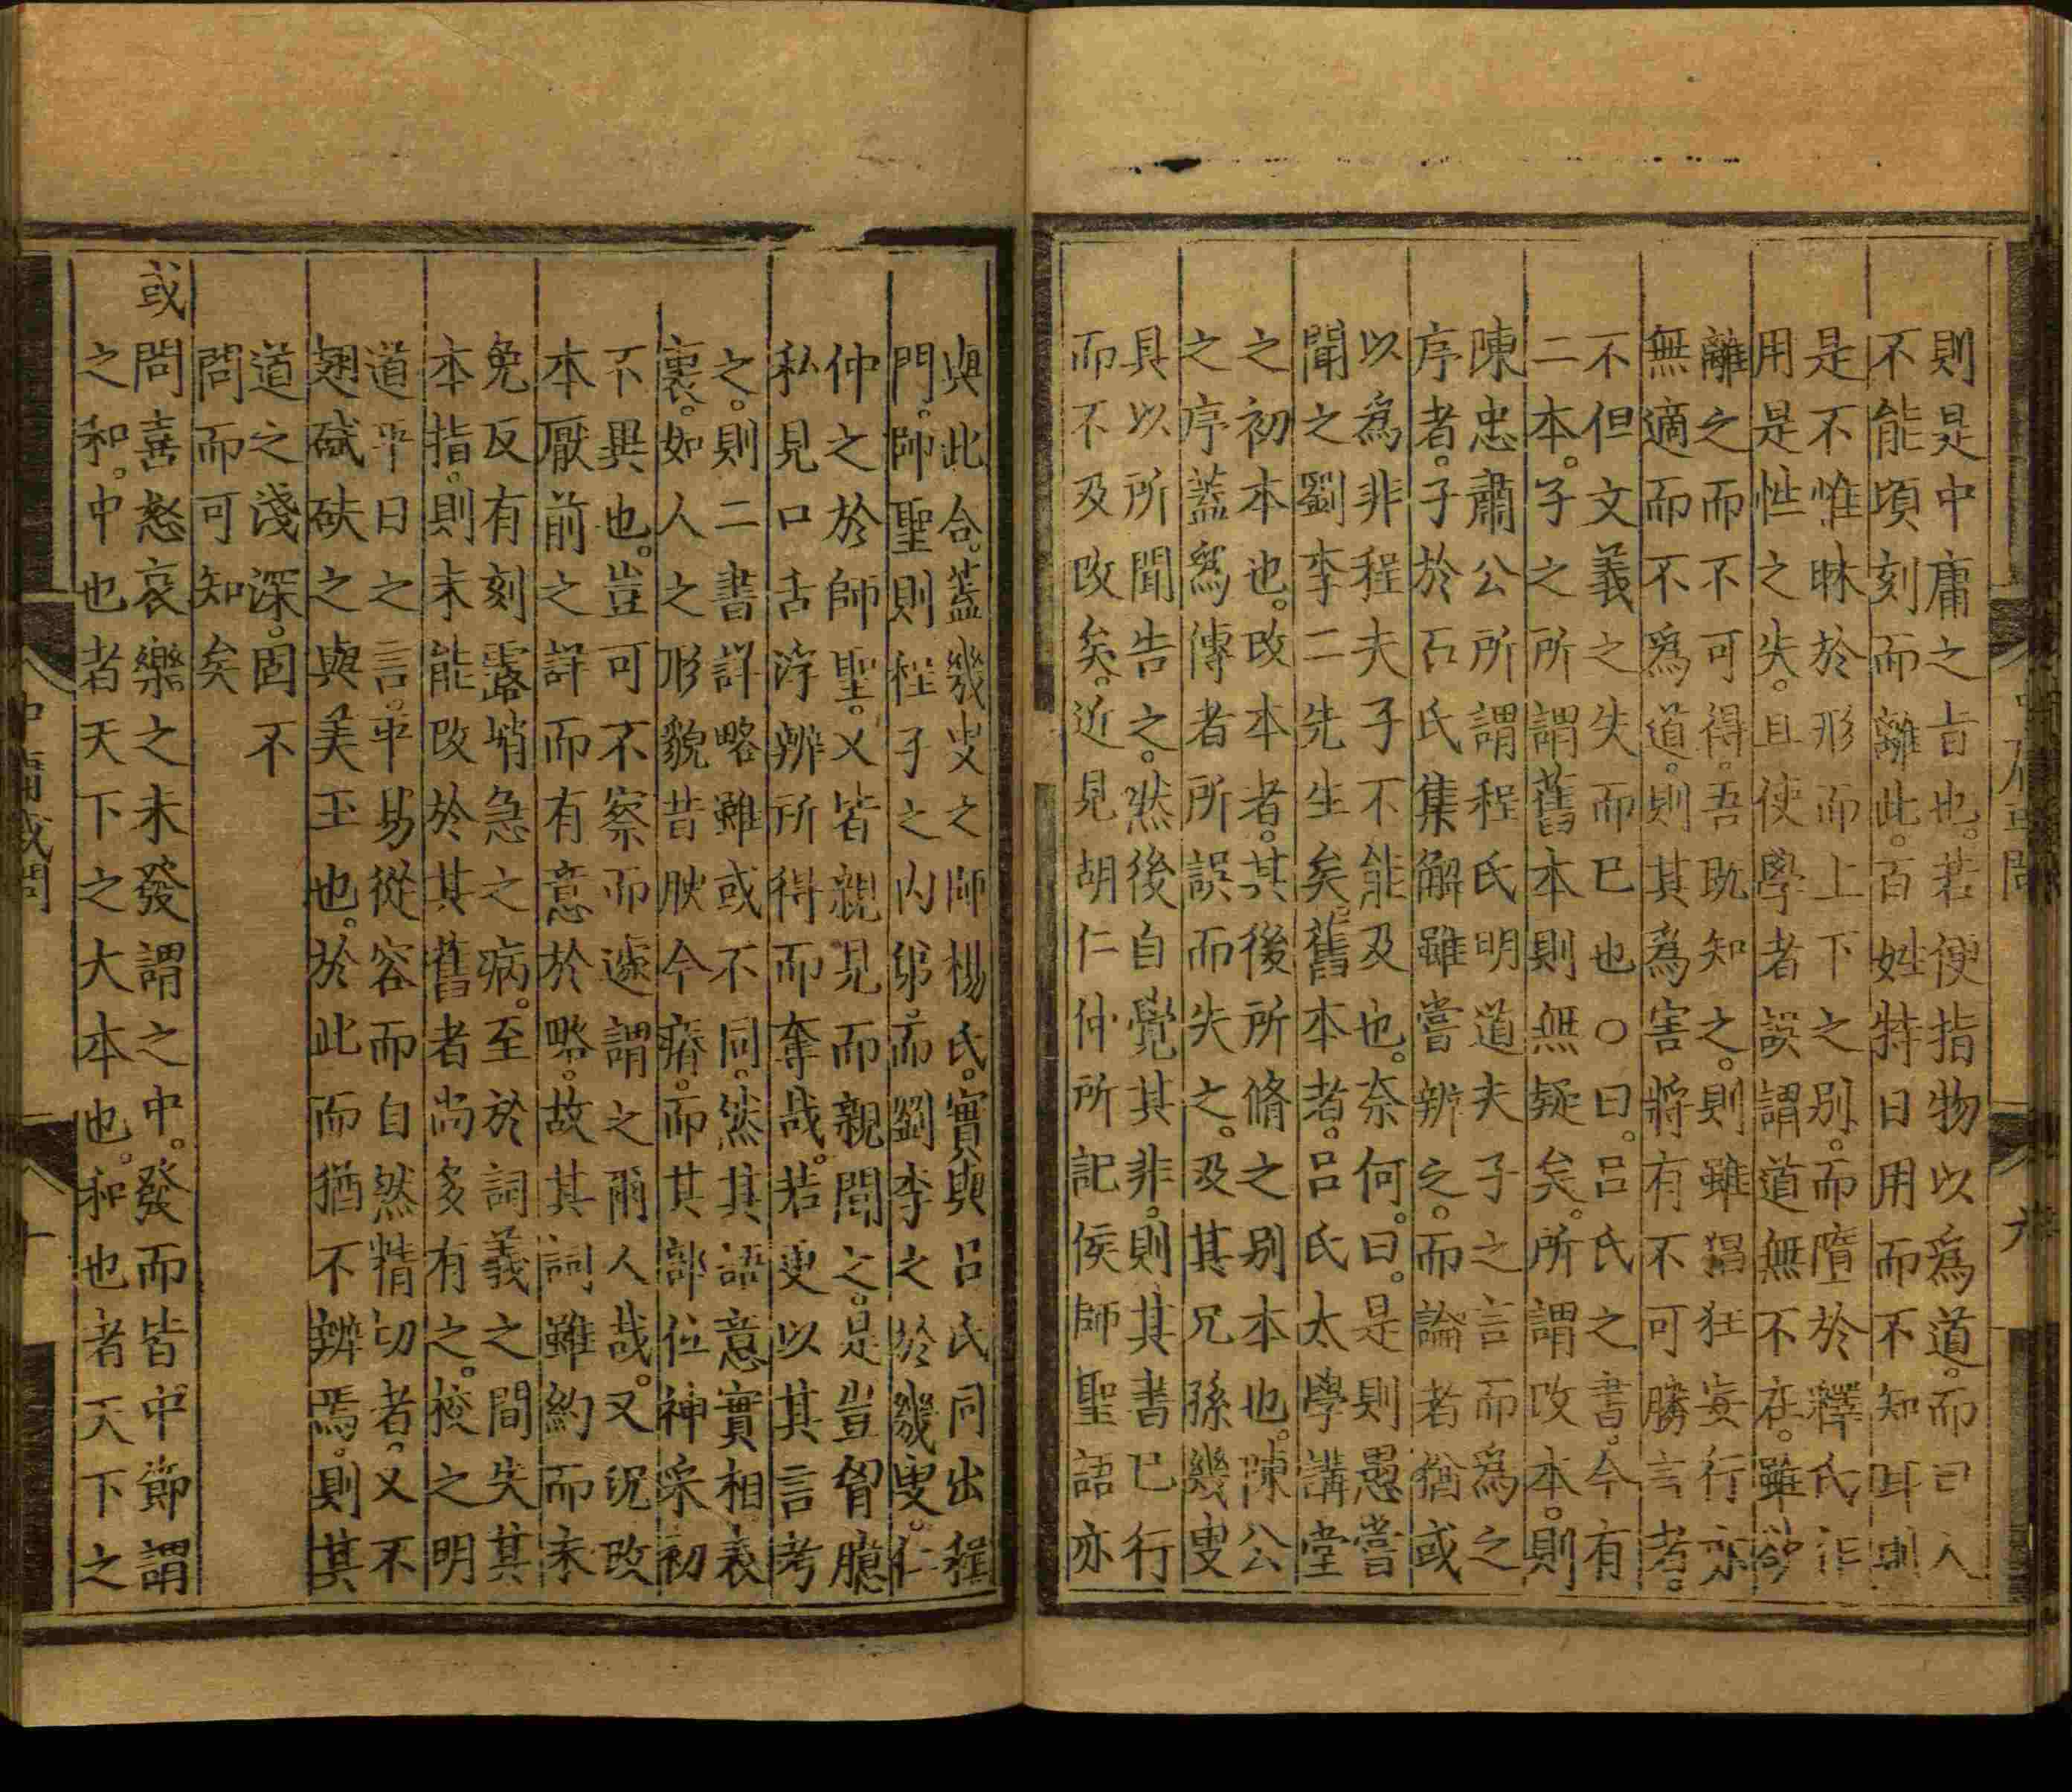 則是中庸之旨也。若便指物以爲道。而曰人
不能頃刻而離此。百姓特日用而不知耳則
是不惟昧於形而上下之別。而墮於釋氏作
用是性之失。且使學者誤謂道無不在。雖欲
離之而不可得。吾既知之。則雖猖狂妄行亦
無適而不爲道。則其爲害將有不可勝言者。
不但文義之失而已也○曰。呂氏之書。今有
二本。子之所謂舊本則無疑矣。所謂改本。則
陳忠肅公所謂程氏明道夫子之言而爲之
序者。子於石氏集解雖嘗辨之。而論者猶或
以爲非程夫子不能及也。奈何。曰。是則愚嘗
聞之劉李二先生矣舊本者。呂氏太學講堂
之初本也。改本者。其後所脩之別本也。陳公
之序蓋爲傳者所誤而失之。及其兄孫幾叟
具以所聞告之。然後自覺其非。則其書已行
而不及改矣。近見胡仁仲所記侯師聖語亦
與此合。蓋幾叟之師楊氏。實與呂氏同出程
門。師聖則程子之內弟而劉李之於幾叟。仁
仲之於師聖。又皆親見而親聞之。是豈胷臆
私見口舌浮辨所得而奪哉。若更以其言考
之。則二書詳略雖或不同。然其語意實相表
裏。如人之形貌昔腴今瘠。而其部位神采初
不異也。豈可不察而遽謂之兩人哉。又況改
本厭前之詳而有意於略。故其詞雖約而未
免反有刻露峭急之病。至於詞義之間失其
本指。則未能改於其舊者尚多有之。挍之明
道平日之言。平易從容而自然精切者。又不
翅碔砆之與美玉也。於此而猶不辨焉。則其
道之淺深。固不
問而可知矣
或問喜怒哀樂之未發謂之中。發而皆中節謂
之和。中也者天下之大本也。和也者天下之
中庸或問
九
中庸或問
十